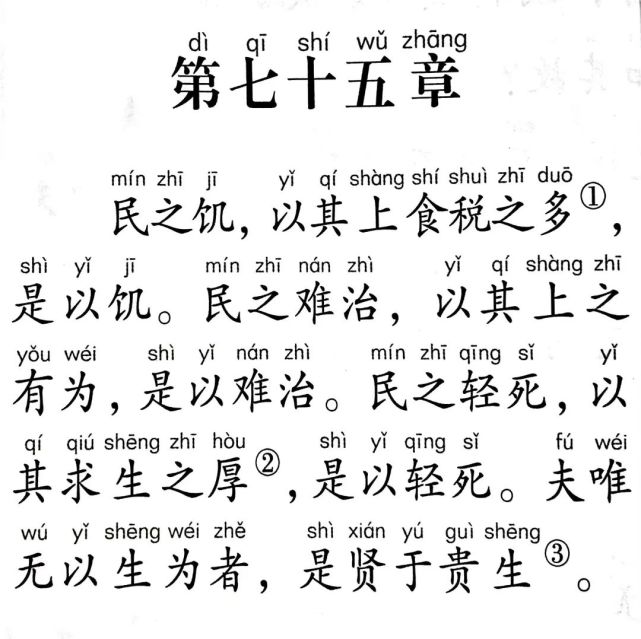 dì qī shí wǔ zhāng
第七十五章
mín zhī jī yǐ qí shàng shí shuì zhī duō
民之饥，以其上食税之多①，
shì yǐ jī mín zhī nán zhì yǐ qí shàng zhī
是以饥。民之难治，以其上之
yǒu wéi shì yǐ nán zhì mín zhī qīng sǐ yǐ
有为，是以难治。民之轻死，以
qí qiú shēng zhī hòu shì yǐ qīng sǐ fú wéi
其求生之厚②，是以轻死。夫唯
wú yǐ shēng wéi zhě shì xián yú guì shēng
无以生为者，是贤于贵生③。